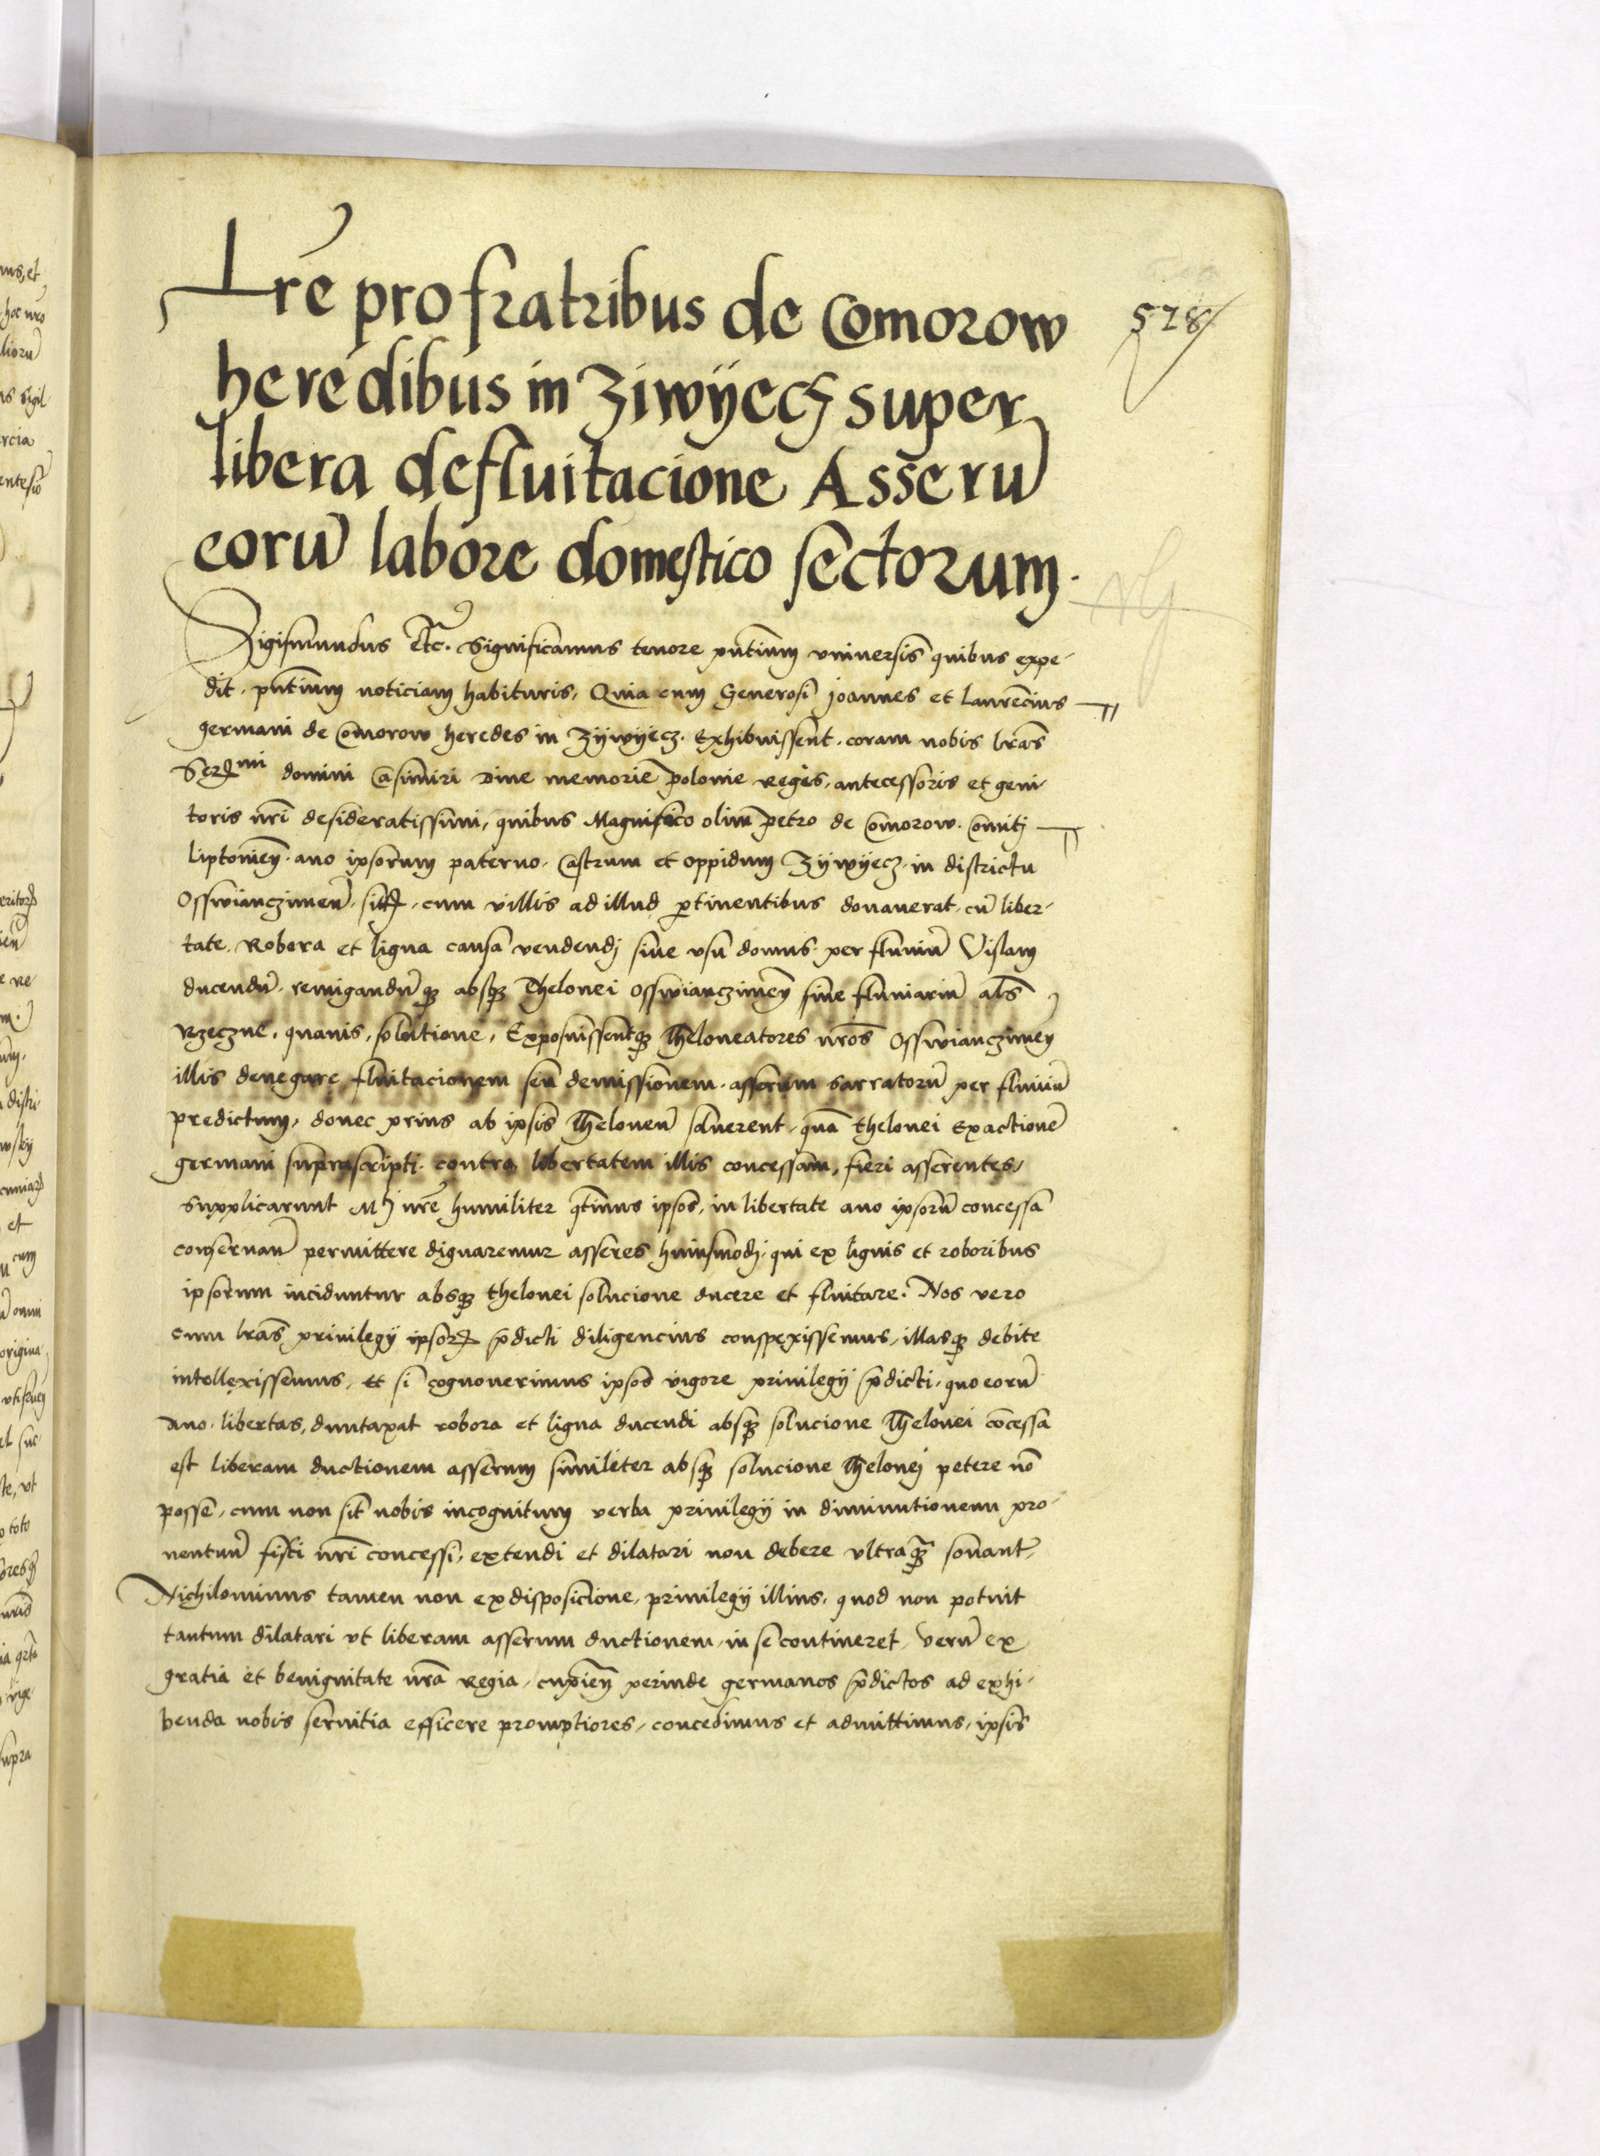 Lrẽ pro fratribus de Comorow
528
heredibus in Ziwÿecz super
libera defluitacione Asserũ
eorũ labore domestico sectorum.
Sigismundus Etc. Significamus tenore pñtium vniuersis quibus expe-
dit. pñtium noticiam habituris, Quia cum Generosi Joannes et laurẽcius
germani de Comorow heredes in Zÿwÿecz. Exhibuissent. coram nobis lras̃
domini Casimiri Diue memorie polonie Reges, antecessoris et geni-
toris nrĩ desideratissimi, quibus Magnifico olim petro de Comorow. Comitj
liptovieñ. auo ipsorum paterno. Castrum et oppidum Zÿwÿecz. in districtu
Osswianczimeñ. cum villis ad illud ptinentibus donauerat. cũ liber-
tate. Robora et ligna causa vendendj siue vsu domus. per fluuiũ Vislam
ducendũ. remigandũqȝ absqȝ Thelonei Osswianczimeñ siue fluuiariũ als̃
Rzeczne. quauis. solutione, Exposuissentqȝ Theloneatores nrõs Osswianczimeñ
illis denegare fluitacionem seu demissionem. asserum sarratorũ per fluuiũ
predictum, donec prius ab ipsis Theloneũ soluerent, quã thelonei Exactionẽ
germani suprascripti. contra libertatem illis concessam, fieri asserentes,
supplicarunt nrẽ humiliter qtĩnus ipsos, in libertate auo ipsorũ concessa
conseruarĩ permittere dignaremur asseres huiusmodj. qui ex lignis et roboribus
ipsorum inciduntur absqȝ thelonei solucione ducere et fluitare. Nos vero
cum lras̃ priuilegÿ ipsorꝝ p̃dicti diligencius conspexissemus, illasqȝ debite
intellexissemus, et si cognouerimus ipsos vigore priuilegÿ p̃dicti. quo eorũ
auo. libertas, duntaxat robora et ligna ducendi absqȝ solucione Thelonei cõcessa
est liberam ductionem asserum similiter absqȝ solucione Thelonej petere nõ
posse, cum non sit nobis incognitum verba priuilegÿ in diminutionem pro-
uentuũ fisci nrĩ concessi, extendi et dilatari non debere vltraqȝ̃ sonant,
Nichilominus tamen non ex disposicione, priuilegÿ illius, quod non potuit
tantum dilatari vt liberam asserum ductionem, in se contineret, verũ ex
gratia et benignitate nrã Regia, cupieñ perinde germanos p̃dictos ad exhi-
benda nobis seruitia efficere promptiores, concedimus et admittimus, ipsis